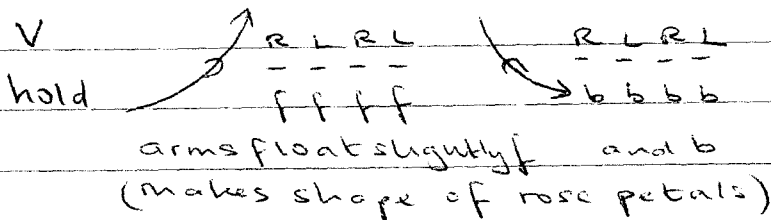 V R L R L R L R L
hold f f f f b b b b
arms float slightly f and b
(makes shape of rose petals)